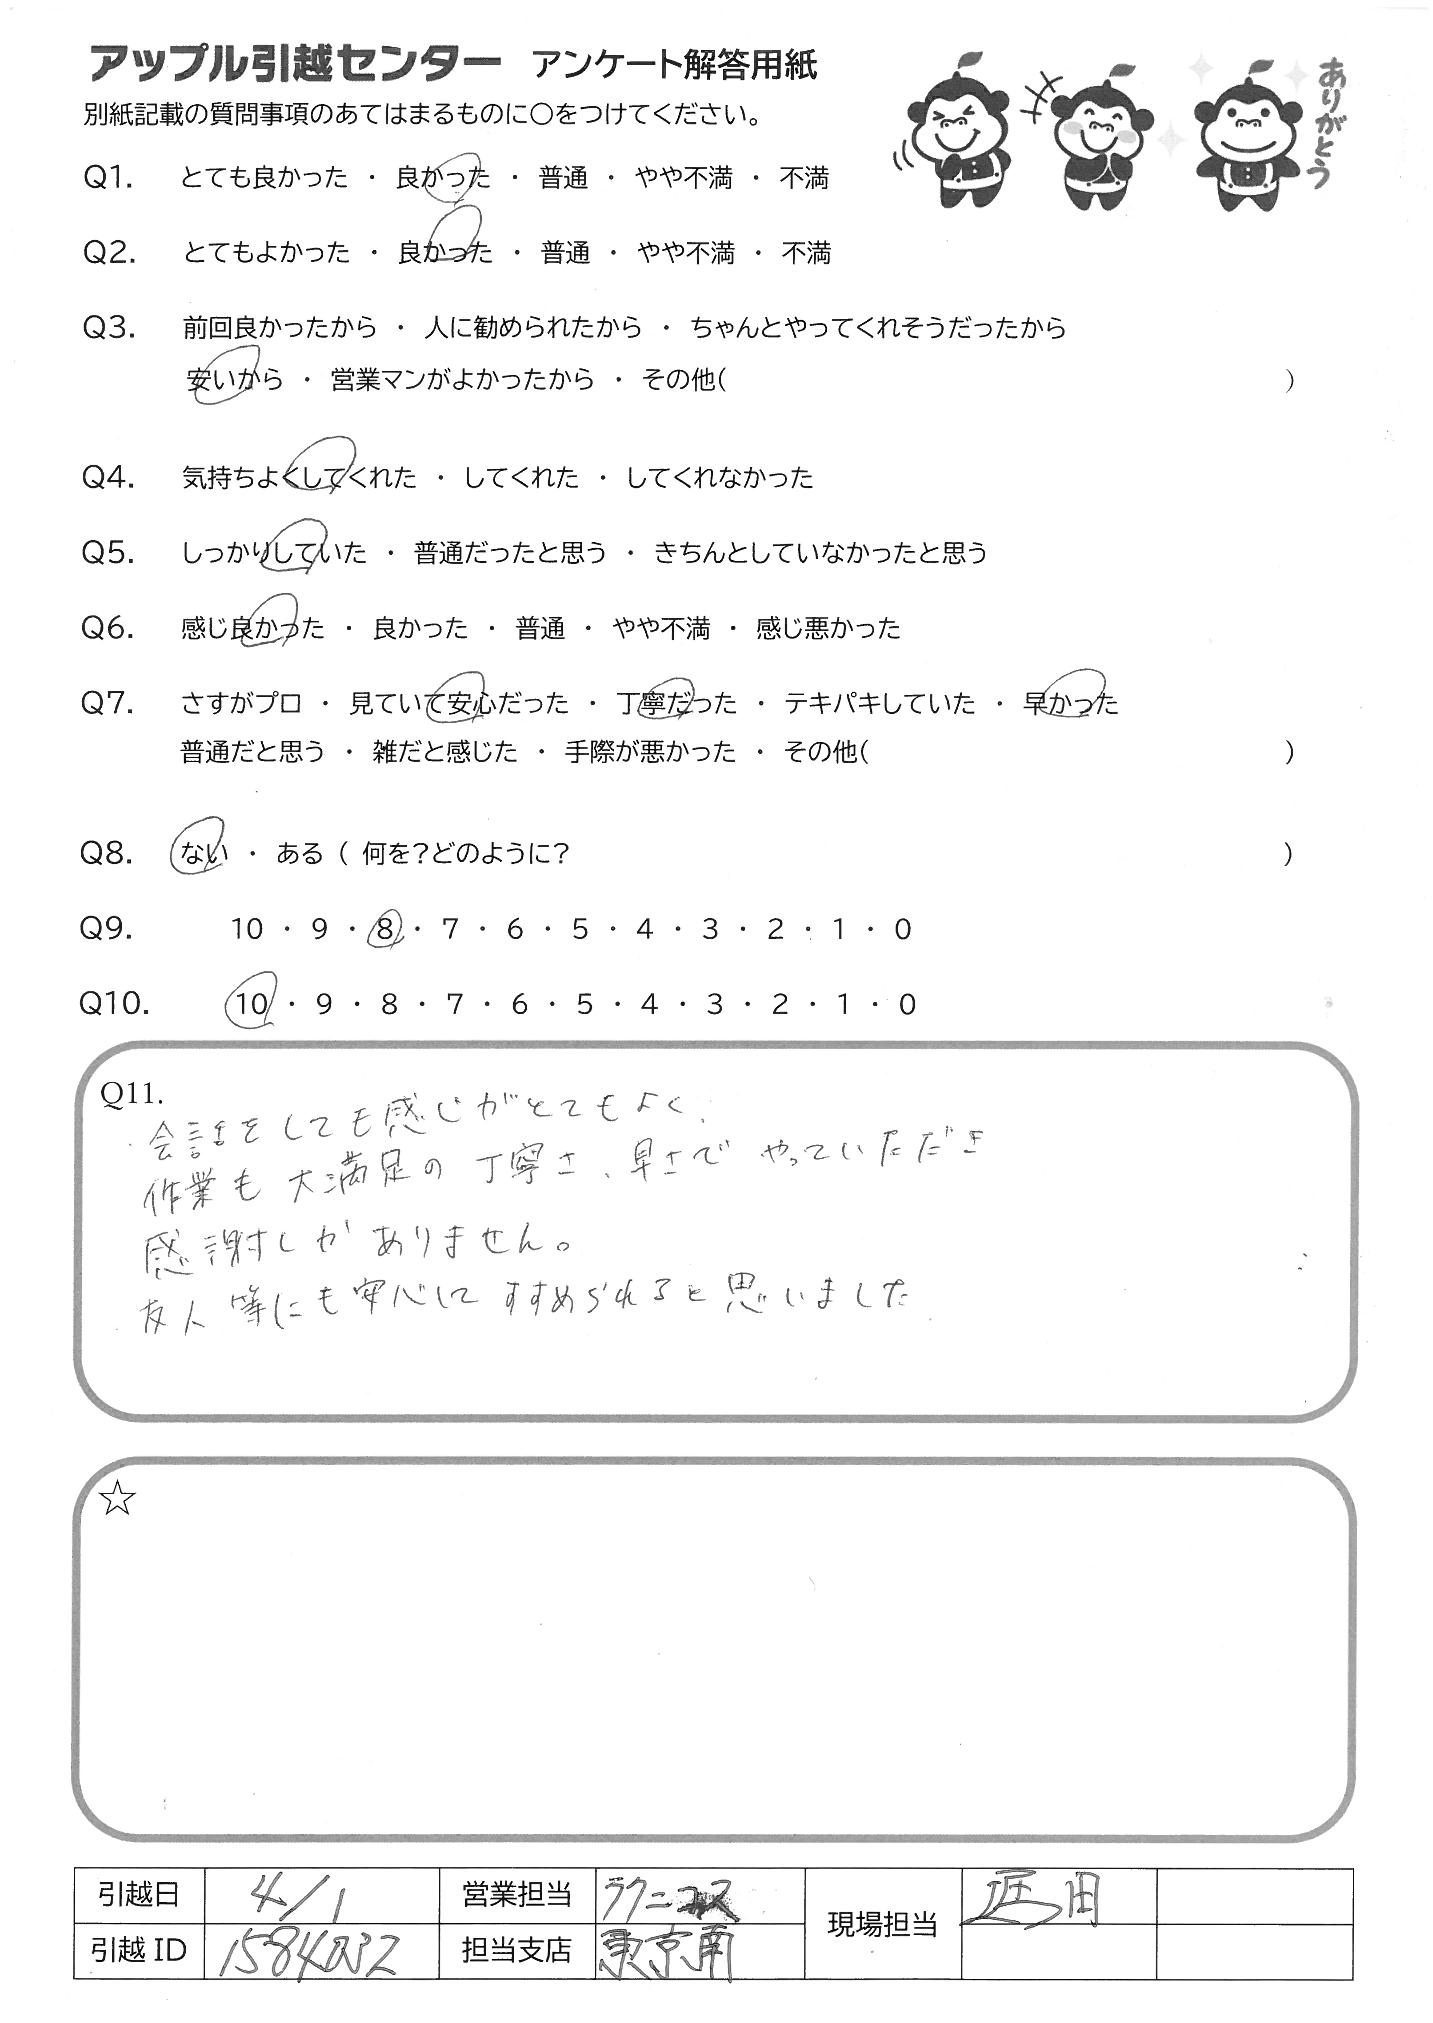 アップル引越センター アンケート解答用紙
別紙記載の質問事項のあてはまるものに○をつけてください。
ありがとう
Q1. とても良かった ・ 良かった ・ 普通 ・ やや不満 ・ 不満
Q2. とてもよかった ・ 良かった ・ 普通 ・ やや不満 ・ 不満
Q3. 前回良かったから ・ 人に勧められたから ・ ちゃんとやってくれそうだったから
安いから ・ 営業マンがよかったから ・ その他( )
Q4. 気持ちよくしてくれた ・ してくれた ・ してくれなかった
Q5. しっかりしていた ・ 普通だったと思う ・ きちんとしていなかったと思う
Q6. 感じ良かった ・ 良かった ・ 普通 ・ やや不満 ・ 感じ悪かった
Q7. さすがプロ ・ 見ていて安心だった ・ 丁寧だった ・ テキパキしていた ・ 早かった
普通だと思う ・ 雑だと感じた ・ 手際が悪かった ・ その他( )
Q8. ない ・ ある ( 何を?どのように? )
Q9. 10 ・ 9 ・ 8 ・ 7 ・ 6 ・ 5 ・ 4 ・ 3 ・ 2 ・ 1 ・ 0
Q10. 10 ・ 9 ・ 8 ・ 7 ・ 6 ・ 5 ・ 4 ・ 3 ・ 2 ・ 1 ・ 0
Q11.
会話をしても感じがとてもよく、
作業も大満足の丁寧さ、早さでやっていただき
感謝しかありません。
友人等にも安心してすすめられると思いました
☆
引越日 4/1 営業担当 ラクニコス 現場担当
引越ID 担当支店 東京南